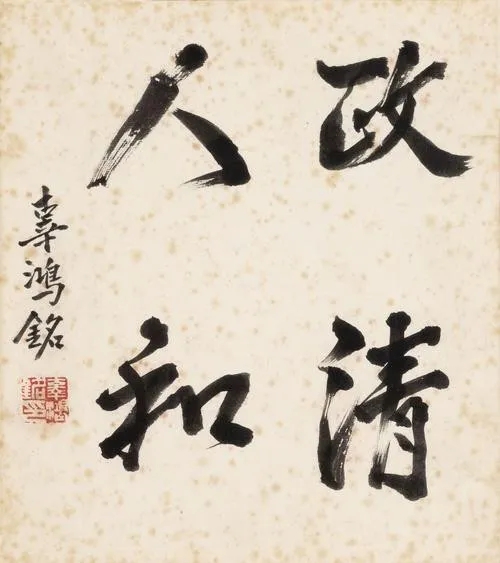 政清
人和
辜鴻銘